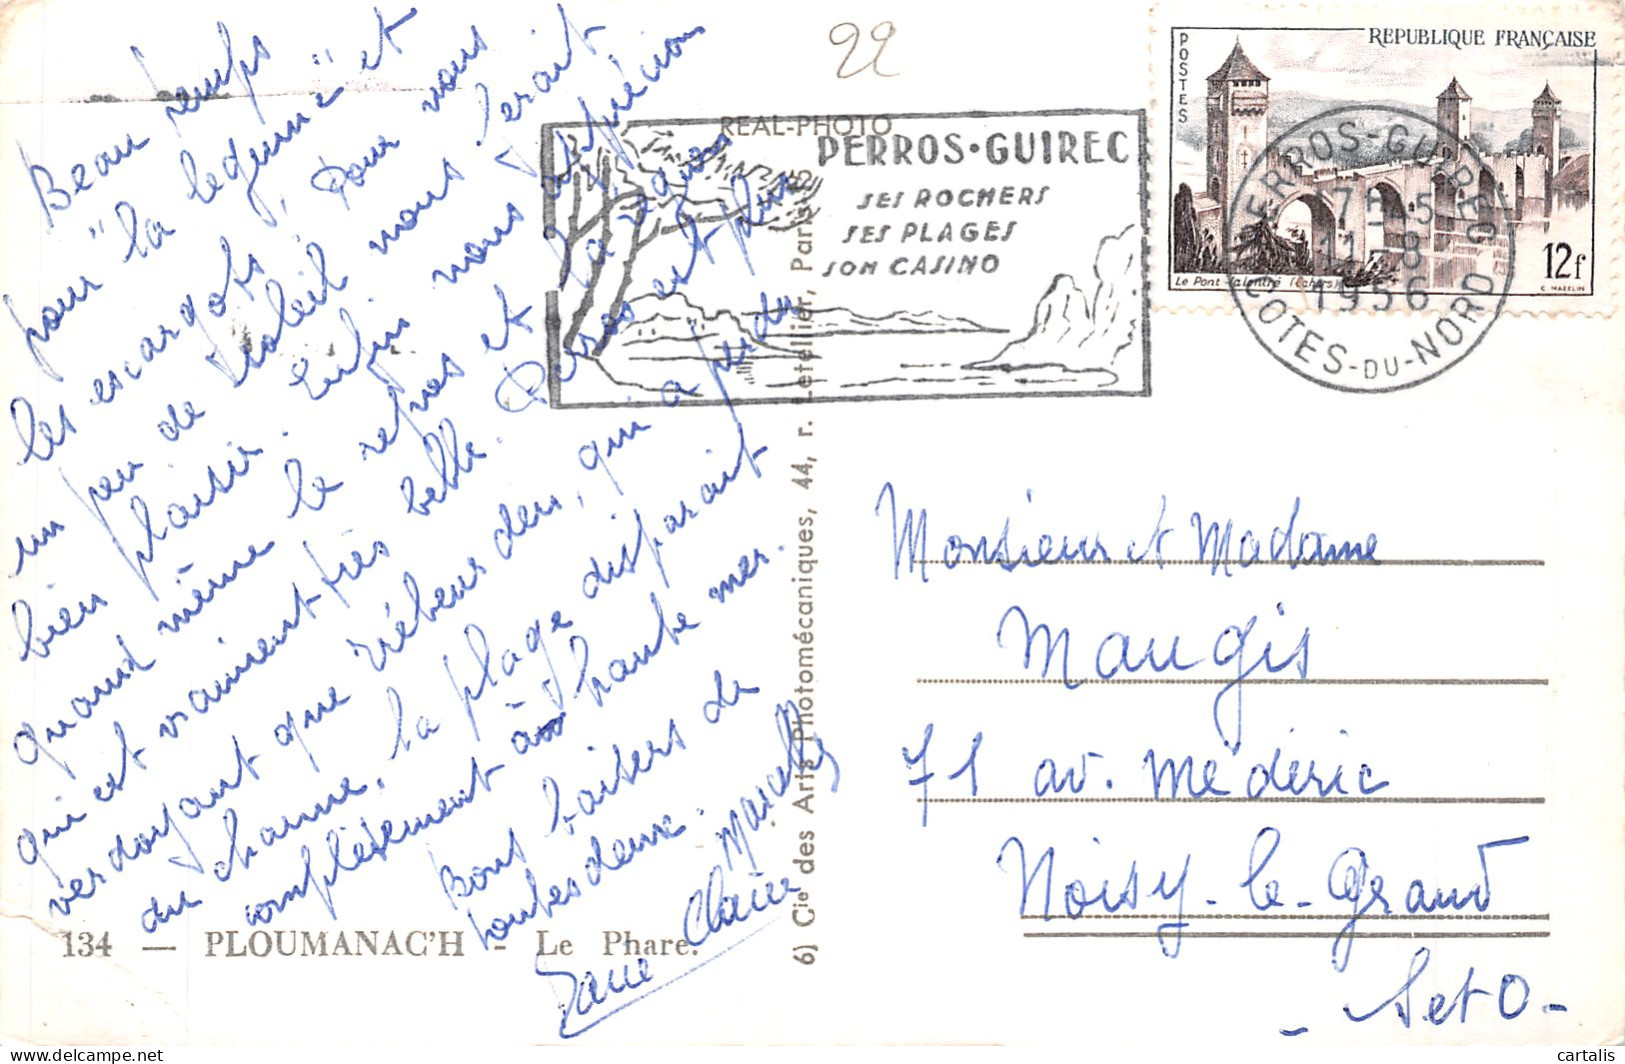 Beau temps
pour "la légume" et
les escargots. Pour nous
un peu de soleil nous ferait
bien plaisir. Enfin nous apprécions
quand même le repos et la région
qui est vraiment très belle. Perros est plus
verdoyant que Trébeurden, qui a perdu
du charme, la plage disparaît
complètement à haute mer.
Bons baisers de
toutes deux.
Marcelle
Claire
134 — PLOUMANAC'H - Le Phare.
6) Cie des Arts Photomécaniques, 44, r. Letellier, Paris
REAL-PHOTO
22
PERROS-GUIREC
SES ROCHERS
SES PLAGES
SON CASINO
POSTES
REPUBLIQUE FRANÇAISE
Le Pont Valentré (Cahors)
12f
C. MAZELIN
PERROS-GUIREC
17-45
11-8
1956
COTES-DU-NORD
Monsieur et Madame
Maugis
71 av. Médéric
Noisy-le-Grand
- S et O -
cartalis
delcampe.net